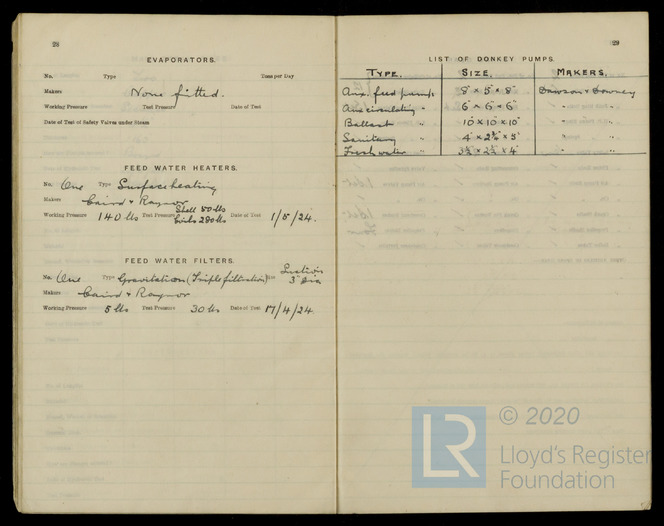 28
EVAPORATORS.
No. Type Tons per Day
Makers None fitted.
Working Pressure Test Pressure Date of Test
Date of Test of Safety Valves under Steam
FEED WATER HEATERS.
No. One Type Surface heating
Makers Caird & Raynor
Working Pressure 140 lbs Test Pressure Shell 80 lbs Coils 280 lbs Date of Test 1/5/24.
FEED WATER FILTERS.
No. One Type Gravitation (Triple filtration) Size Suction 3" dia
Makers Caird & Raynor
Working Pressure 5 lbs Test Pressure 30 lbs Date of Test 17/4/24
29
LIST OF DONKEY PUMPS.
TYPE. SIZE. MAKERS.
Aux. feed pumps 8" × 5" × 8" Dawson & Downey
Aux circulating " 6" × 6" × 6" "
Ballast " 10" × 10" × 10" "
Sanitary " "
Fresh water " "
© 2020
LR Lloyd's Register
Foundation